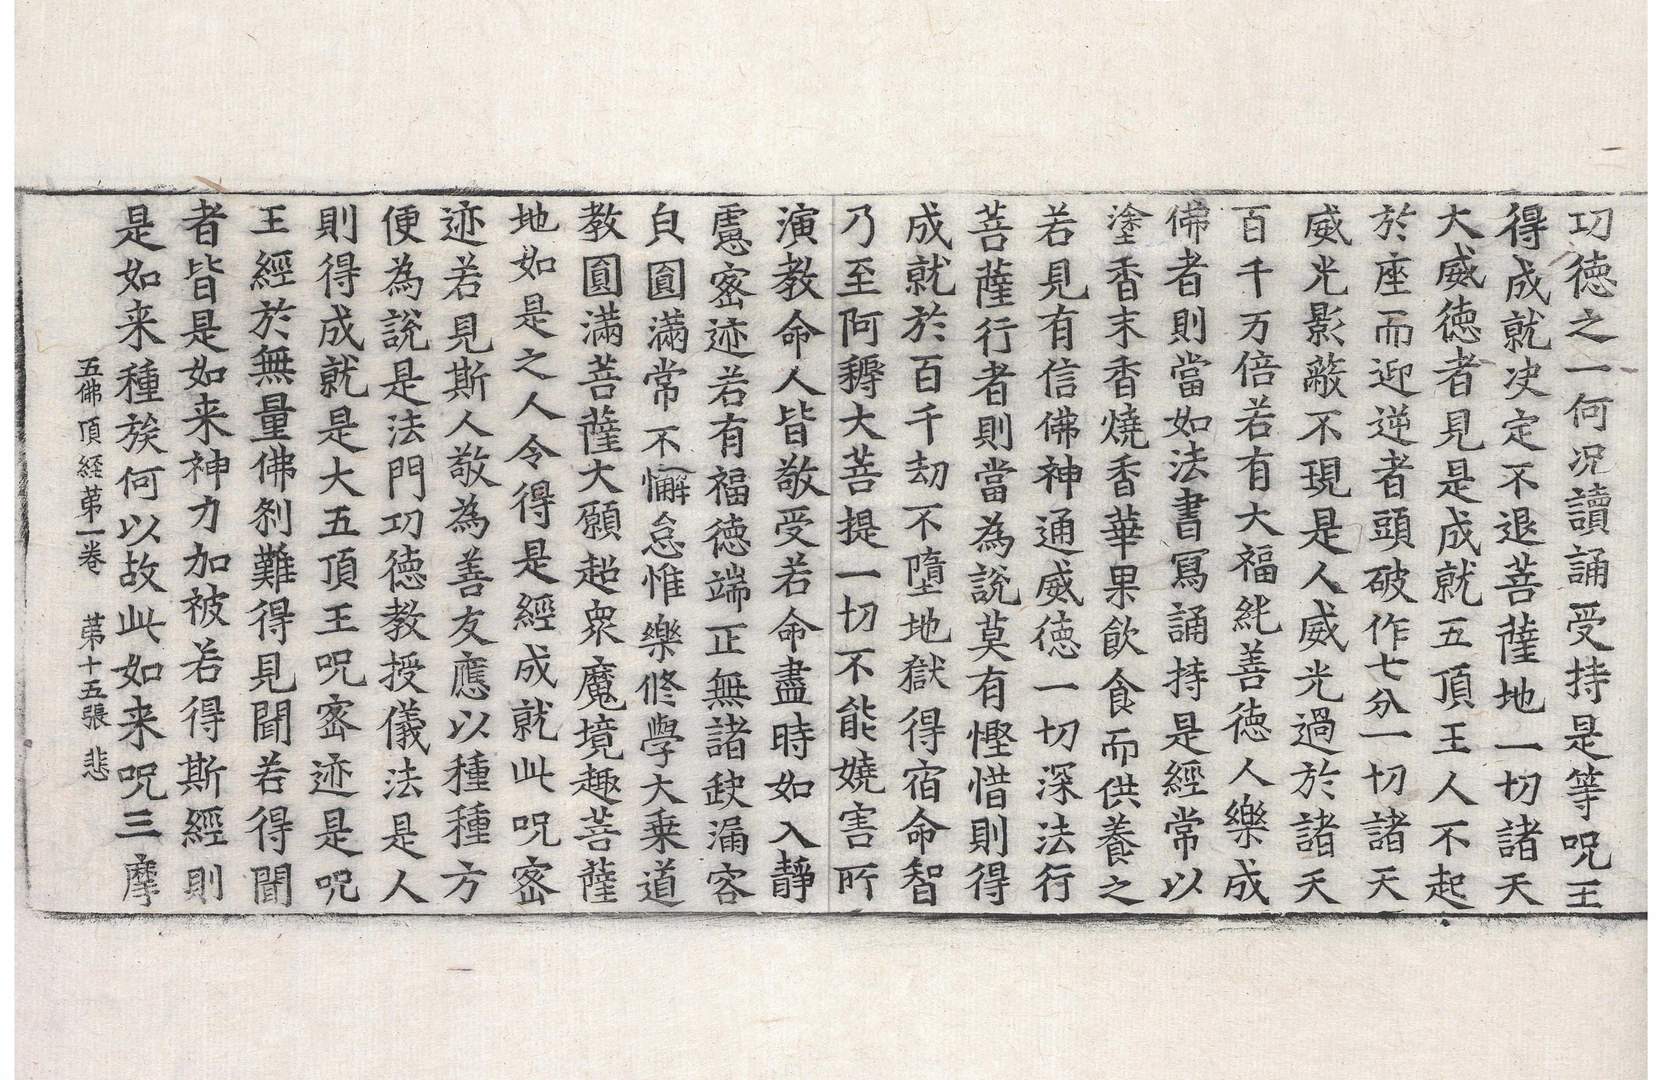 功徳之一何況讀誦受持是等呪王
得成就決定不退菩薩地一切諸天
大威徳者見是成就五頂王人不起
於座而迎逆者頭破作七分一切諸天
威光影蔽不現是人威光過於諸天
百千万倍若有大福純善徳人樂成
佛者則當如法書寫誦持是經常以
塗香末香燒香華果飲食而供養之
若見有信佛神通威徳一切深法行
菩薩行者則當為說莫有慳惜則得
成就於百千劫不墮地獄得宿命智
乃至阿耨大菩提一切不能嬈害所
演教命人皆敬受若命盡時如入靜
慮密迹若有福徳端正無諸缺漏容
白圓滿常不懈怠惟樂修學大乗道
教圓滿菩薩大願超衆魔境趣菩薩
地如是之人令得是經成就此呪密
迹若見斯人敬為善友應以種種方
便為說是法門功徳教授儀法是人
則得成就是大五頂王呪密迹是呪
王經於無量佛刹難得見聞若得聞
者皆是如来神力加被若得斯經則
是如来種族何以故此如来呪三摩
五佛頂経苐一卷 苐十五張 悲